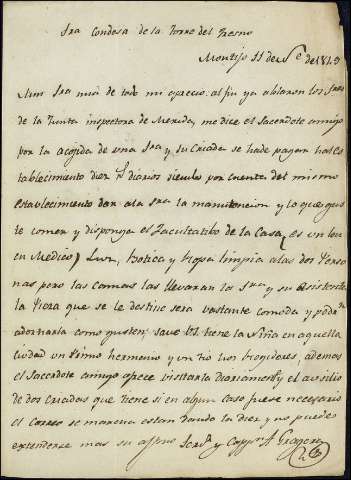 Sra Condesa de la Torre del Fresno
Montijo 11 de de 1849
Mui Sra mia de todo mi aprecio: al fin ya ablaron los Sres
de la Junta inspectora de Merida, me dice el Sacerdote amigo
por la acojida de una Sra y su Criada se hade pagar hal Es
tablecimiento diez rs diarios siendo por cuenta del mismo
establecimiento dar ala Sra la manutencion y lo que gus
te comer y disponga el Facultatibo de la Casa (es un buen
Medico) Luz, botica y Ropa limpia alas dos Perso
nas pero las camas las llevaran la Sra y su Asistenta
la Pieza que se le destine sera bastante comoda y podrn
adornarla como gusten: save Vd. tiene la Niña en aquella
Ciudad un Primo hermano y un tio los Regidores, ademas
el Sacerdote amigo ofrece visitarla diariamente y el ausilio
de dos Criadas que tiene si en algun caso fuese necesario
el Correo se marcha estan dando la diez y no puedo
estenderme mas su afmo Serbr y Cappn A Gragera